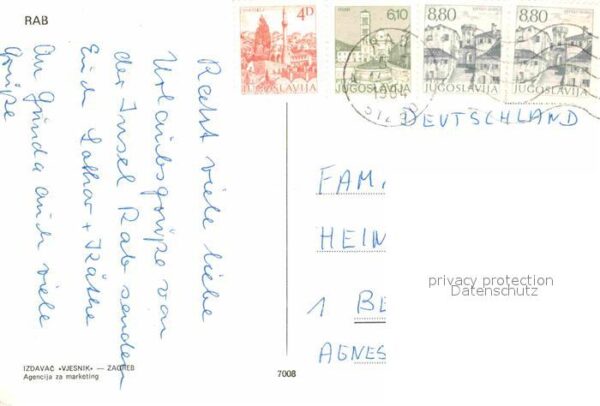 RAB
4D
JUGOSLAVIJA
6,10
JUGOSLAVIJA
8,80
JUGOSLAVIJA
8,80
JUGOSLAVIJA
1984
Recht viele liebe
Urlaubsgrüße von
der Insel Rab senden
Euch Lothar + Käthe
An Gunda auch viele
Grüße
DEUTSCHLAND
FAM.
HEIN
1 BE
AGNES
privacy protection
Datenschutz
IZDAVAČ «VJESNIK» — ZAGREB
Agencija za marketing
7008